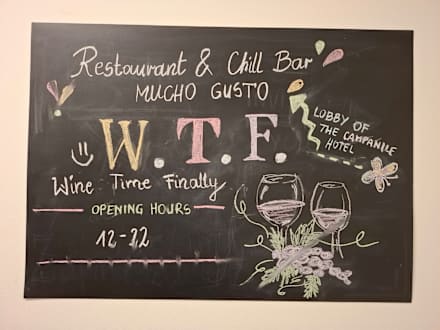 Restaurant & Chill Bar
MUCHO GUSTO
LOBBY OF
THE CAMPANILE
HOTEL
W.T.F.
Wine Time Finally
OPENING HOURS
12-22